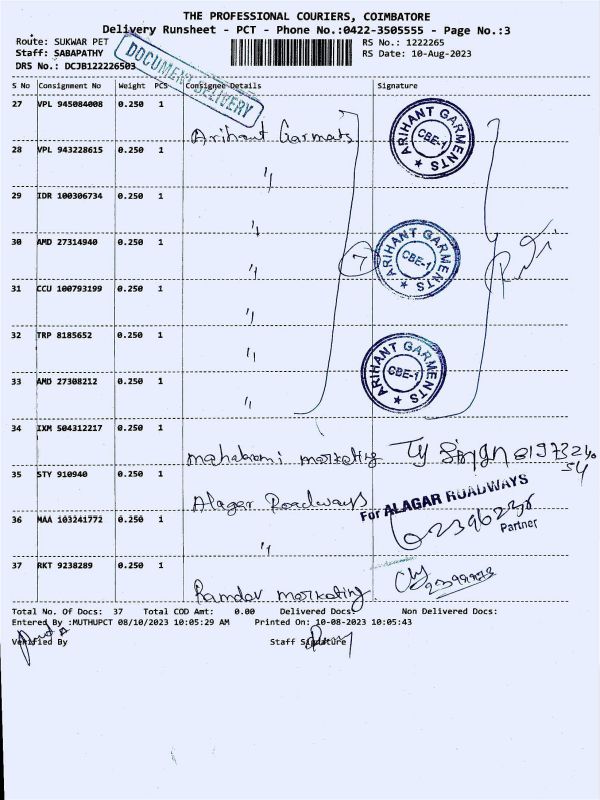 THE PROFESSIONAL COURIERS, COIMBATORE
Delivery Runsheet - PCT - Phone No.:0422-3505555 - Page No.:3
Route: SUKWAR PET
RS No.: 1222265
Staff: SABAPATHY
RS Date: 10-Aug-2023
DRS No.: DCJB122226503
DOCUMENT DELIVERY
S No Consignment No Weight PCS Consignee Details Signature
27 VPL 945084008 0.250 1
Arihant Garments
ARIHANT GARMENTS CBE-1
28 VPL 943228615 0.250 1
"
29 IDR 100306734 0.250 1
"
30 AMD 27314940 0.250 1
"
7
ARIHANT GARMENTS CBE-1
31 CCU 100793199 0.250 1
"
32 TRP 8185652 0.250 1
"
ARIHANT GARMENTS CBE-1
33 AMD 27308212 0.250 1
"
34 IXM 504312217 0.250 1
marketing
35 STY 910940 0.250 1
Alagar Roadways
For ALAGAR ROADWAYS
Partner
36 MAA 103241772 0.250 1
"
37 RKT 9238289 0.250 1
Ramdev marketing
Total No. Of Docs: 37 Total COD Amt: 0.00 Delivered Docs: Non Delivered Docs:
Entered By :MUTHUPCT 08/10/2023 10:05:29 AM Printed On: 10-08-2023 10:05:43
Verified By Staff Signature